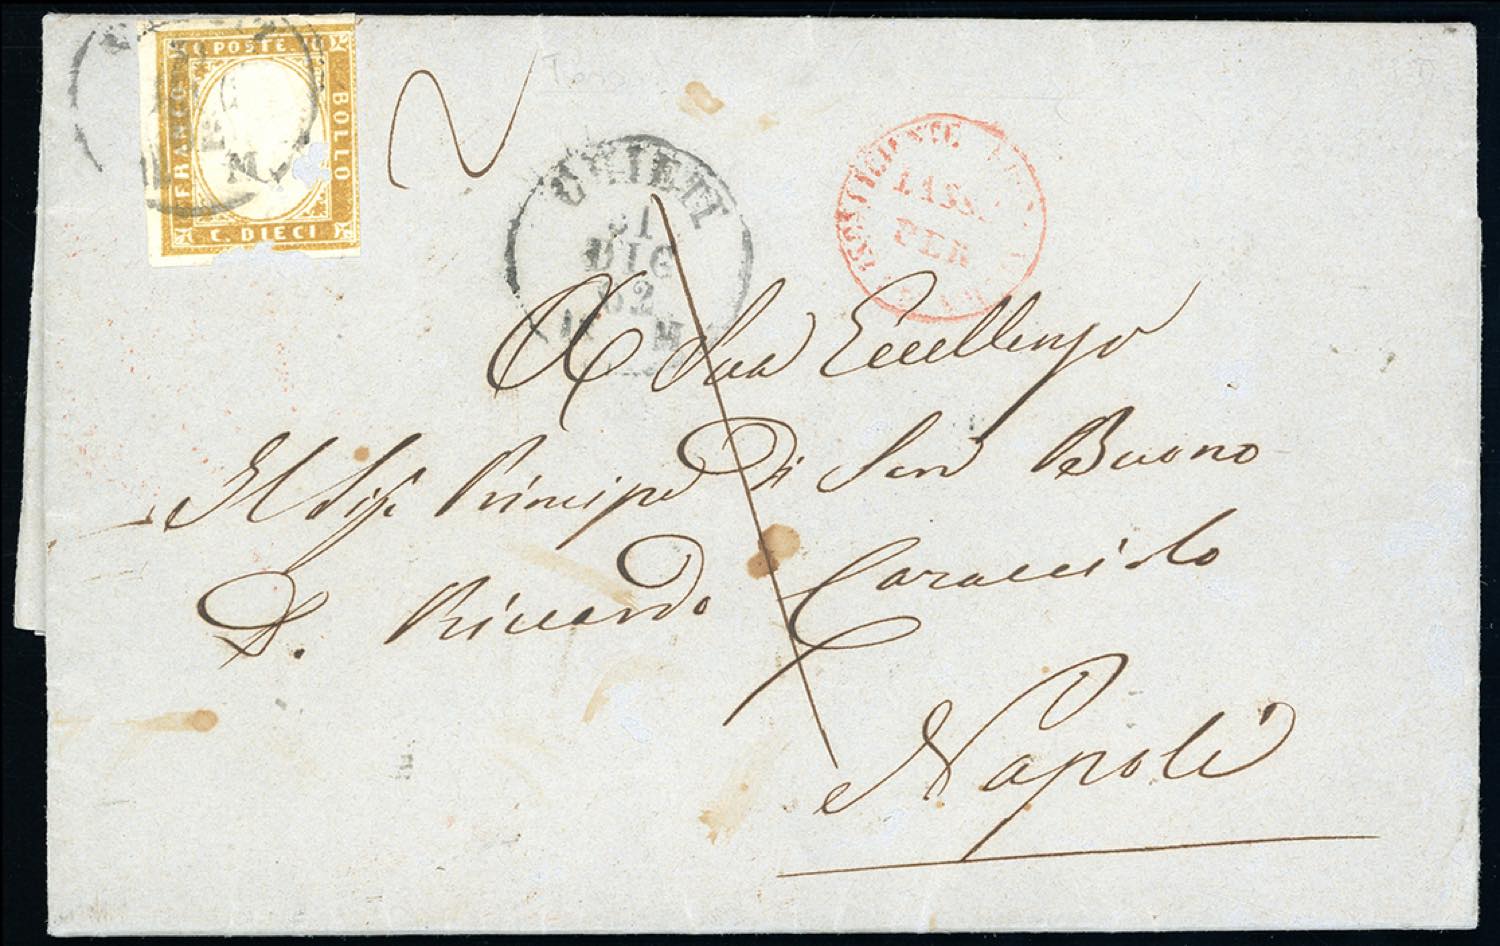 C 10 POSTE 10
FRANCO
BOLLO
C. DIECI
M
2
CHIETI
31
DIC
62
M
INSUFFICIENTE
TASSA
PER
A Sua Eccellenza
Il Sigr Principe Di San Buono
D. Riccardo Caracciolo
Napoli